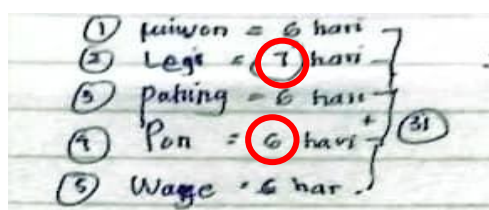 ① kliwon = 6 hari
② Legi = 7 hari
③ pahing = 6 hari
④ Pon = 6 hari + 31
⑤ Wage = 6 har.